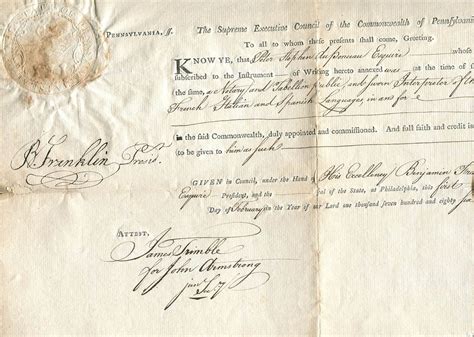 PENNSYLVANIA, ss.
The Supreme Executive Council of the Commonwealth of Pennsylvani
To all to whom these presents shall come, Greeting.
KNOW YE, that Peter Stephen Esquire whose
subscribed to the Instrument of Writing hereto annexed was at the time of s
the same, a Notary and Tabellion public, and sworn Interpreter of
French Italian and Spanish Languages in and for
in the said Commonwealth, duly appointed and commissioned. And full faith and credit is
to be given to him as such
B Franklin, Presid.
GIVEN in Council, under the Hand of His Excellency Benjamin Fra
Esquire President, and the Seal of the State, at Philadelphia, this first
Day of February in the Year of our Lord one thousand seven hundred and eighty six
ATTEST,
James Trimble
for John Armstrong
junr Secy